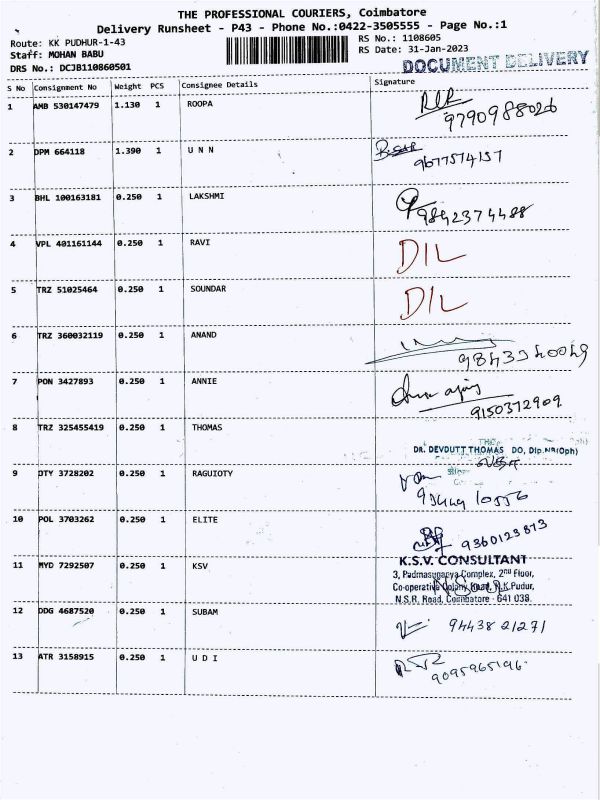 THE PROFESSIONAL COURIERS, Coimbatore
Delivery Runsheet - P43 - Phone No.:0422-3505555 - Page No.:1
Route: KK PUDHUR-1-43
RS No.: 1108605
Staff: MOHAN BABU
RS Date: 31-Jan-2023
DRS No.: DCJB110860501
DOCUMENT DELIVERY
S No Consignment No Weight PCS Consignee Details Signature
1 AMB 530147479 1.130 1 ROOPA
9790988026
2 DPM 664118 1.390 1 U N N
9677574157
3 BHL 100163181 0.250 1 LAKSHMI
9842374488
4 VPL 401161144 0.250 1 RAVI D/L
5 TRZ 51025464 0.250 1 SOUNDAR D/L
6 TRZ 360032119 0.250 1 ANAND
7 PON 3427893 0.250 1 ANNIE
9150372909
8 TRZ 325455419 0.250 1 THOMAS
DR. DEVDUTT THOMAS DO, Dip.NB(Oph)
9 DTY 3728202 0.250 1 RAGUIOTY
10 POL 3703262 0.250 1 ELITE
9360123873
11 MYD 7292507 0.250 1 KSV
K.S.V. CONSULTANT
3, Padmasugapya Complex, 2nd Floor,
Co-operative Colony Road, K.K.Pudur,
N.S.R. Road, Coimbatore - 641 038.
12 DDG 4687520 0.250 1 SUBAM
9443821271
13 ATR 3158915 0.250 1 U D I
9095965196